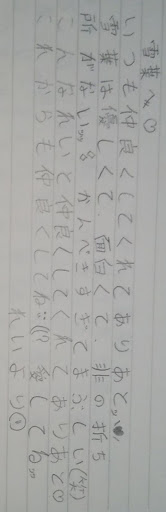 雪葉へ☺
いつも仲良くしてくれてありがと。♥
雪葉は優しくて、面白くて、非の折ち
所がない。。かんぺきすぎてまぶしい(笑)
こんなれいと仲良くしてくれてありがと☺
これからも仲良くしてね!!! 愛してる。。
れいより☺